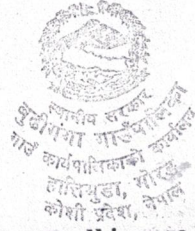 स्थानीय सरकार
बुढीगंगा गाउँपालिका
गाउँ कार्यपालिकाको कार्यालय
हालिमुडा, मोरङ
कोशी प्रदेश, नेपाल